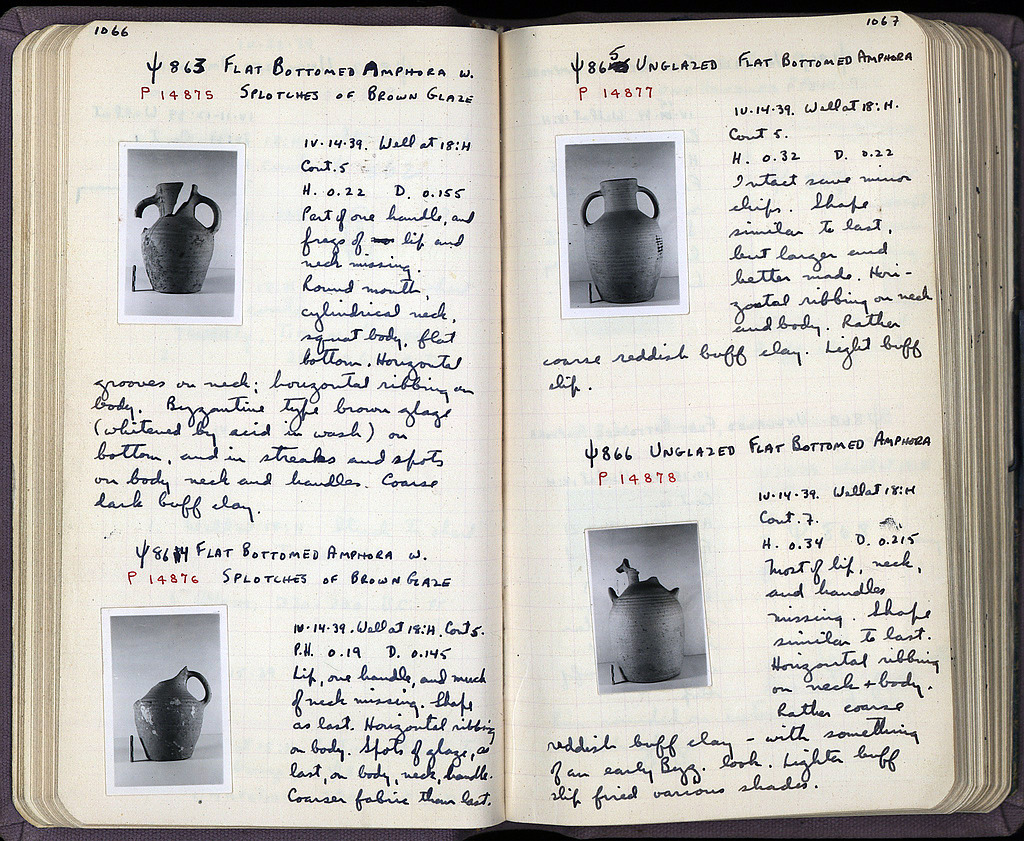 1066
Ψ 863 FLAT BOTTOMED AMPHORA W.
P 14875 SPLOTCHES OF BROWN GLAZE
IV·14·39. Well at 18:H
Cont. 5
H. 0.22 D. 0.155
Part of one handle, and
frags of lip and
neck missing.
Round mouth,
cylindrical neck,
squat body, flat
bottom. Horizontal
grooves on neck; horizontal ribbing on
body. Byzantine type brown glaze
(whitened by acid in wash) on
bottom, and in streaks and spots
on body neck and handles. Coarse
dark buff clay.
Ψ 864 FLAT BOTTOMED AMPHORA W.
P 14876 SPLOTCHES OF BROWN GLAZE
IV·14·39. Well at 18:H. Cont 5.
P.H. 0.19 D. 0.145
Lip, one handle, and much
of neck missing. Shape
as last. Horizontal ribbing
on body. Spots of glaze, as
last, on body, neck, handle.
Coarser fabric than last.
1067
Ψ 865 UNGLAZED FLAT BOTTOMED AMPHORA
P 14877
IV·14·39. Well at 18:H.
Cont 5.
H. 0.32 D. 0.22
Intact save minor
chips. Shape
similar to last,
but larger and
better made. Hori-
zontal ribbing on neck
and body. Rather
coarse reddish buff clay. Light buff
slip.
Ψ 866 UNGLAZED FLAT BOTTOMED AMPHORA
P 14878
IV·14·39. Well at 18:H
Cont. 7.
H. 0.34 D. 0.215
Most of lip, neck,
and handles
missing. Shape
similar to last.
Horizontal ribbing
on neck + body.
Rather coarse
reddish buff clay – with something
of an early Byz. look. Lighter buff
slip fired various shades.